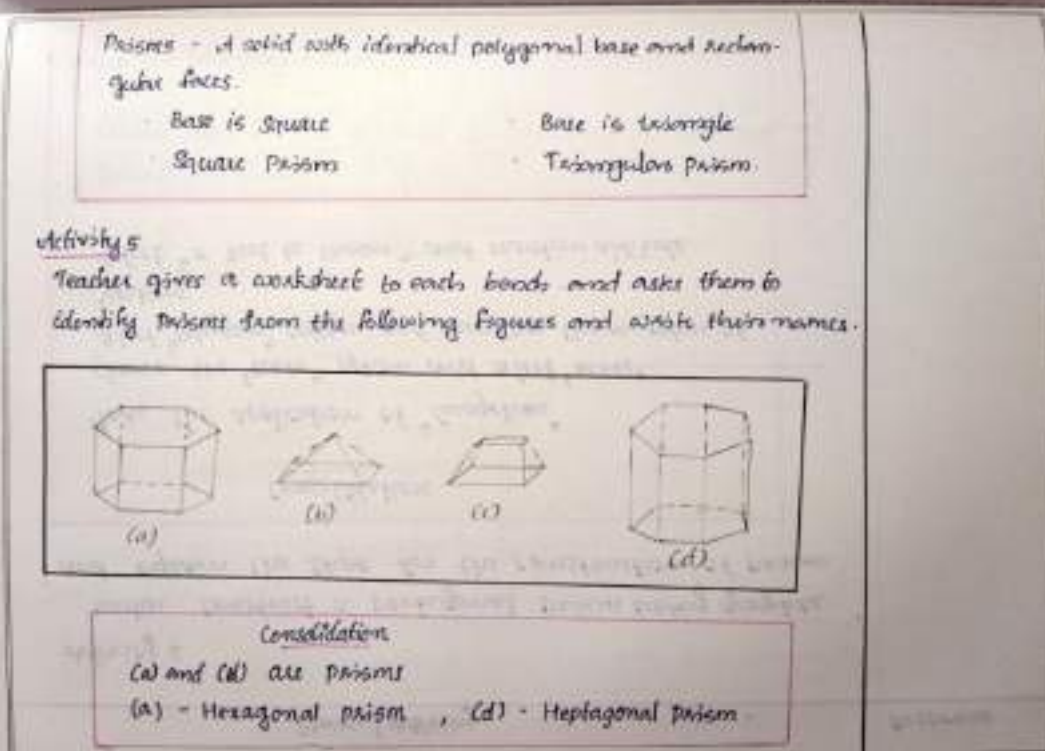 Prisms - A solid with identical polygonal base and rectan-
gular faces.
· Base is square
· Square prism
· Base is triangle
· Triangular prism.
Activity 5
Teacher gives a worksheet to each bench and asks them to
identify prisms from the following figures and write their names.
(a)
(b)
(c)
(d)
Consolidation
(a) and (d) are prisms
(a) - Hexagonal prism , (d) - Heptagonal prism